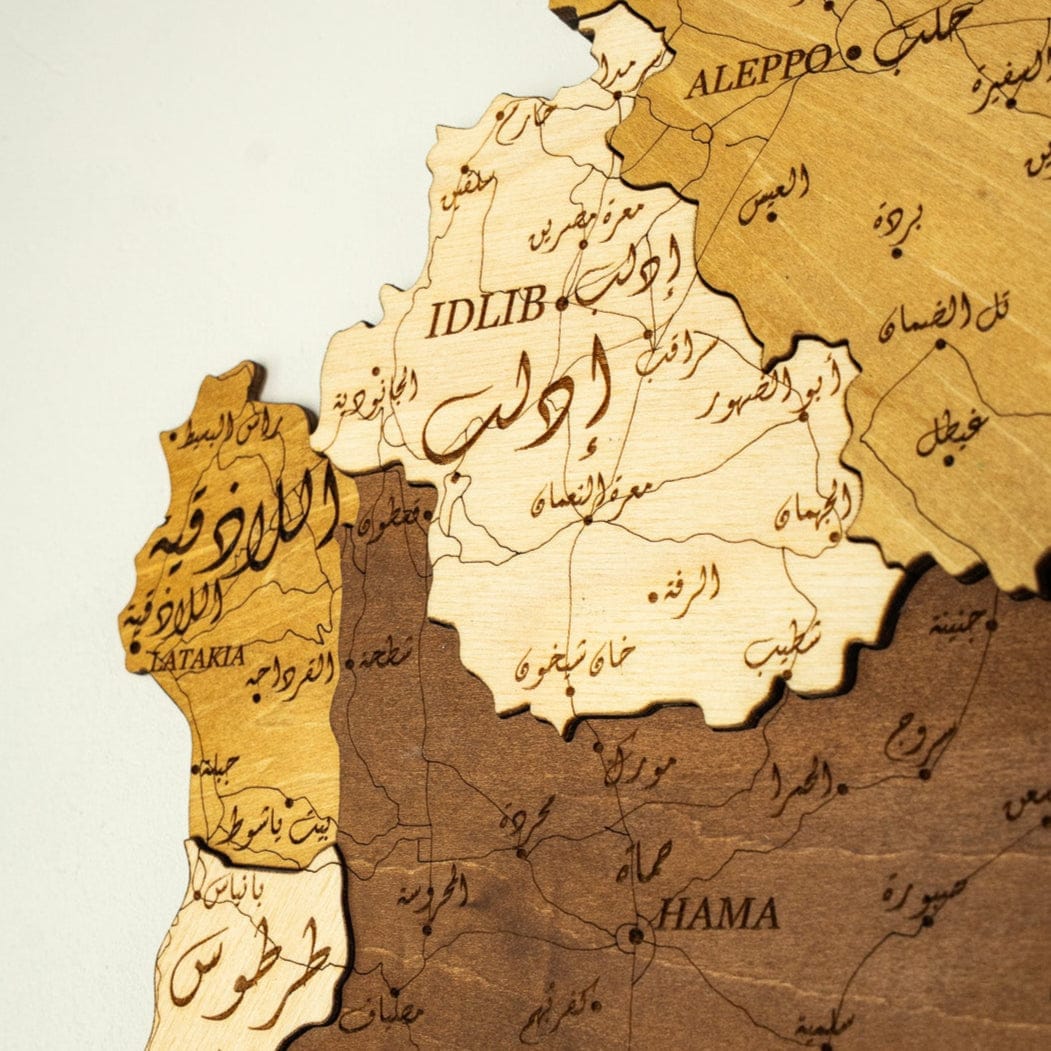 سرمدا
ALEPPO حلب
السفيرة
حارم
سلقين
العيس
بردة
معرة مصرين
IDLIB إدلب
تل الضمان
سراقب
إدلب
الجانودية
أبو الضهور
راس البسيط
غيطل
معرة النعمان
الجهمان
اللاذقية
الرفة
اللاذقية
LATAKIA
القرداحة
شطحة
جنينة
خان شيخون
شطيب
سروج
مورك
الحمرا
جبلة
بيت ياشوط
محردة
حماة
بانياس
صبورة
HAMA
طرطوس
مصياف
كفربهم
سلمية